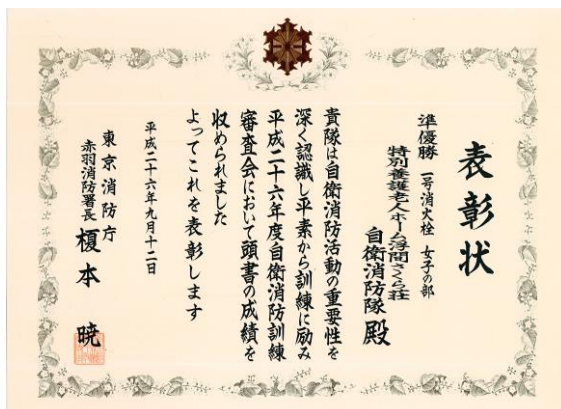 表彰状
準優勝 一号消火栓 女子の部
特別養護老人ホーム浮間さくら荘
自衛消防隊 殿
貴隊は自衛消防活動の重要性を
深く認識し平素から訓練に励み
平成二十六年度自衛消防訓練
審査会において頭書の成績を
収められました
よってこれを表彰します
平成二十六年九月十二日
東京消防庁
赤羽消防署長 榎本 暁